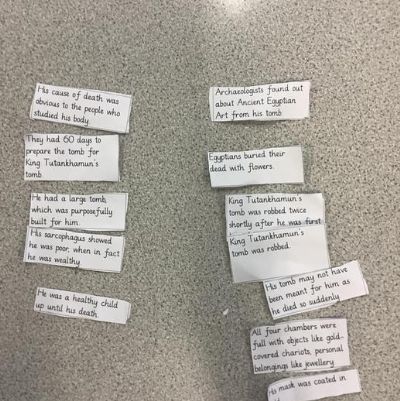 His cause of death was
obvious to the people who
studied his body.
They had 60 days to
prepare the tomb for
King Tutankhamun's
tomb.
He had a large tomb,
which was purposefully
built for him.
His sarcophagus showed
he was poor, when in fact
he was wealthy
He was a healthy child
up until his death.
Archaeologists found out
about Ancient Egyptian
Art from his tomb
Egyptians buried their
dead with flowers.
King Tutankhamun's
tomb was robbed twice
shortly after he was first
King Tutankhamun's
tomb was robbed.
His tomb may not have
been meant for him as
he died so suddenly
All four chambers were
full with objects like gold-
covered chariots, personal
belongings like jewellery
His mask was coated in